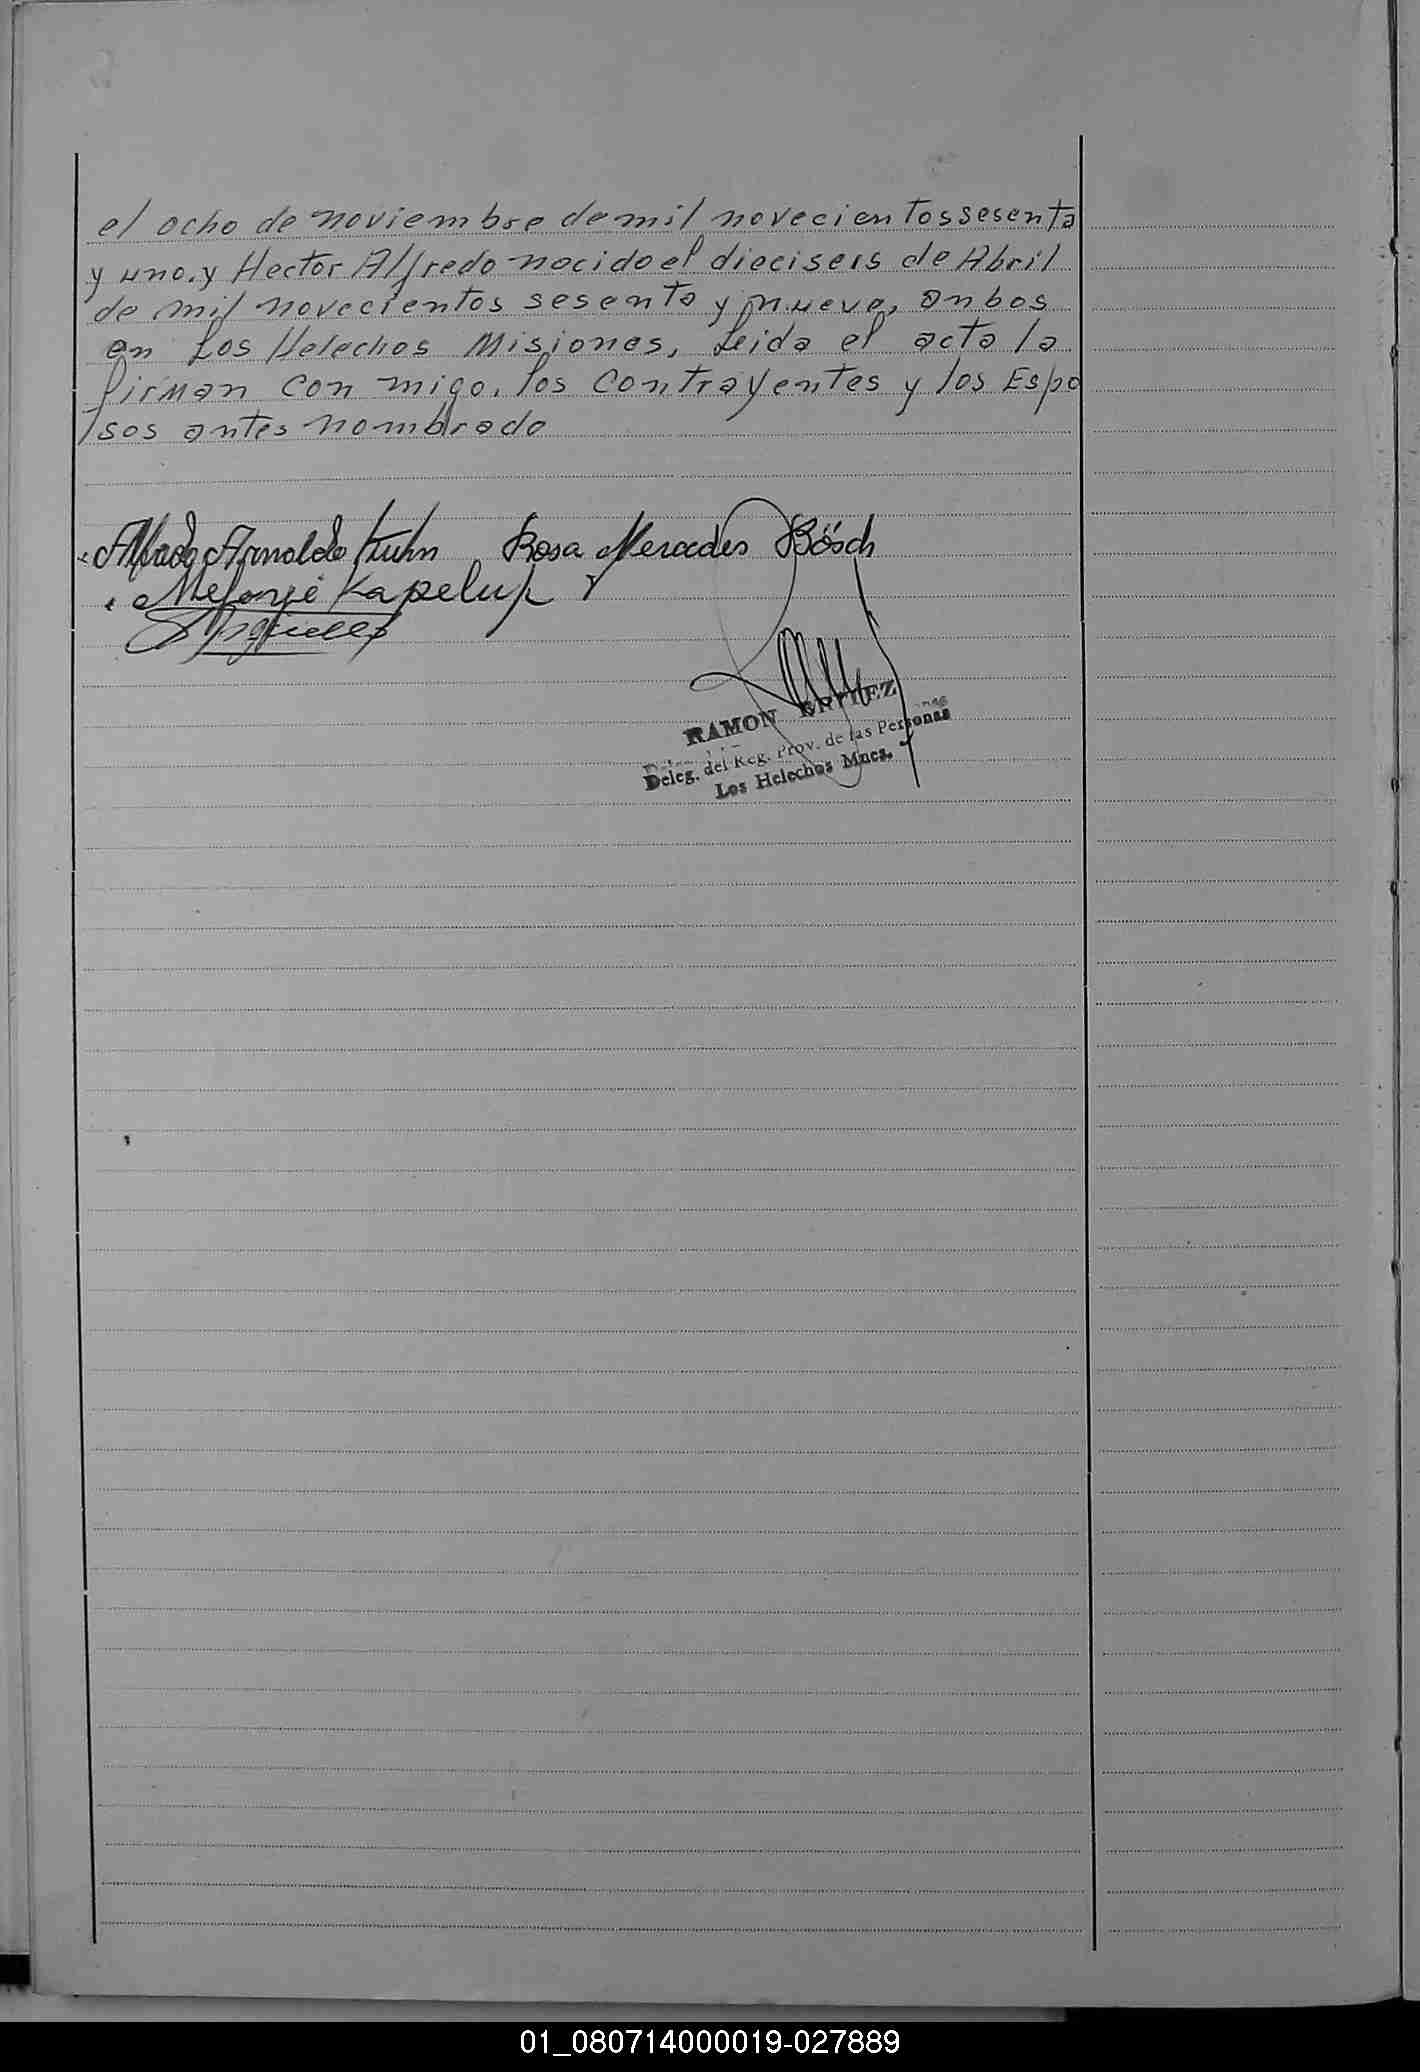 el ocho de noviembre de mil novecientos sesenta
y uno. y Hector Alfredo nacido el dieciseis de Abril
de mil novecientos sesenta y nueve, anbos
en Los Helechos Misiones, Leida el acta la
firman con migo. los contrayentes y los Espo
sos antes nombrado
Alfredo Arnoldo Kuhn Rosa Mercedes Bösch
Kapeluk
RAMON
Deleg. del Reg. Prov. de las Personas
Los Helechos Mnes.
01_080714000019-027889